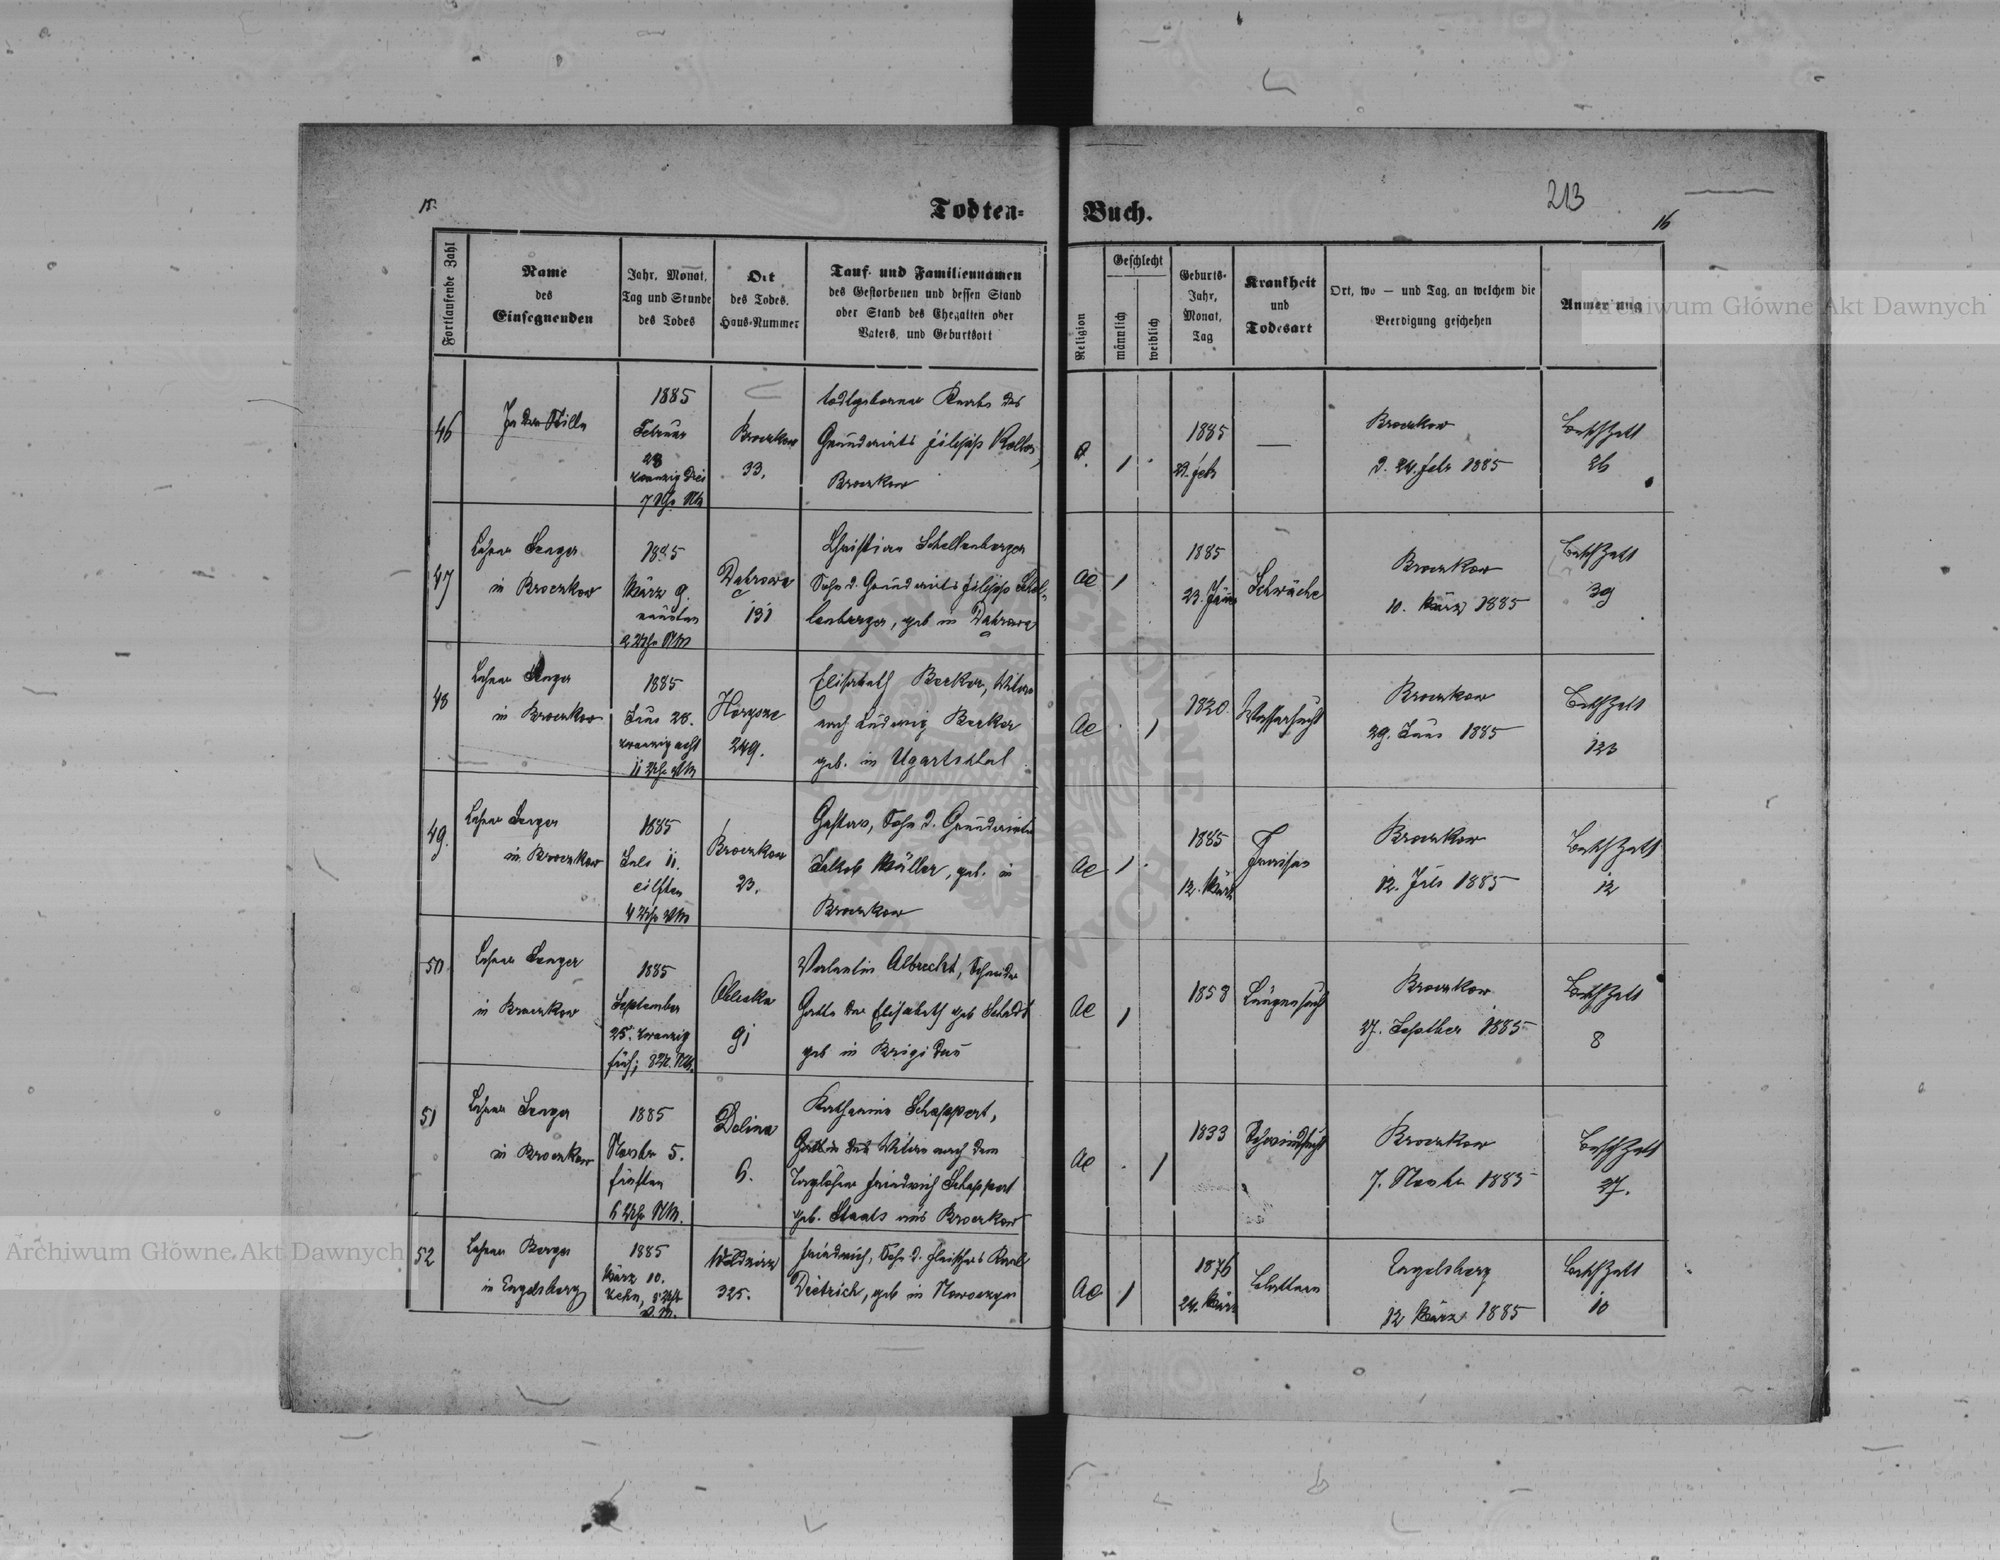 213
15.
Todten-
Buch.
16
Fortlaufende Zahl
Name
des
Einsegnenden
Jahr, Monat,
Tag und Stunde
des Todes
Ort
des Todes.
Haus-Nummer
Tauf- und Familiennamen
des Gestorbenen und dessen Stand
oder Stand des Ehegatten oder
Vaters, und Geburtsort
Religion
Geschlecht
männlich
weiblich
Geburts-
Jahr,
Monat,
Tag
Krankheit
und
Todesart
Ort, wo — und Tag, an welchem die
Beerdigung geschehen
Anmerkung
46
In der Stille
1885
Februar
23
zwanzig drei
7 Uhr
Broczkow
33.
todtgeborner Knabe des
Grundwirts
Broczkow
1885
23. Feb
—
Broczkow
d. 24. Febr 1885
26
47
Lehrer Senger
in Broczkow
1885
März 9.
neunten
2 Uhr
Dabrowa
131
Christian Schellenberger
Sohn d. Grundwirts Philipp Schel-
lenberger, geb in Dabrowa
ac
1885
23.
Schwäche
Broczkow
10. März 1885
39
48
Lehrer Senger
in Broczkow
1885
Juni 28.
zwanzig acht
11 Uhr
249.
Elisabeth Becker, Witwe
nach Ludwig Becker
geb. in Ugartsthal
ac
1820
Wassersucht
Broczkow
29. Juni 1885
123
49.
Lehrer Senger
in Broczkow
1885
Juli 11.
eilften
4 Uhr
Broczkow
23.
Gustav, Sohn d. Grundwirts
Jakob Müller, geb. in
Broczkow
ac
1885
12. März
Fraisen
Broczkow
12. Juli 1885
12
50
Lehrer Senger
in Broczkow
1885
September
25. zwanzig
91
Valentin Albrecht, Schneider
Gatte der Elisabeth geb Schadt
geb in Brigidau
ac
1858
Lungensucht
Broczkow
27. Septber 1885
8
51
Lehrer Senger
in Broczkow
1885
Novbr 5.
fünften
6 Uhr
Dolina
6.
Katharina Schappert,
Witwe nach dem
Taglöhner Friedrich Schappert
geb. Staats aus Broczkow
ac
1833
Schwindsucht
Broczkow
7. Novbr 1885
27.
52
Lehrer Berger
in Engelsberg
1885
März 10.
zehn,
325.
Friedrich, Sohn d. Fleischers Karl
Dietrich, geb in
ac
1876
24. März
Blattern
Engelsberg
12 März 1885
10
Archiwum Główne Akt Dawnych
Archiwum Główne Akt Dawnych